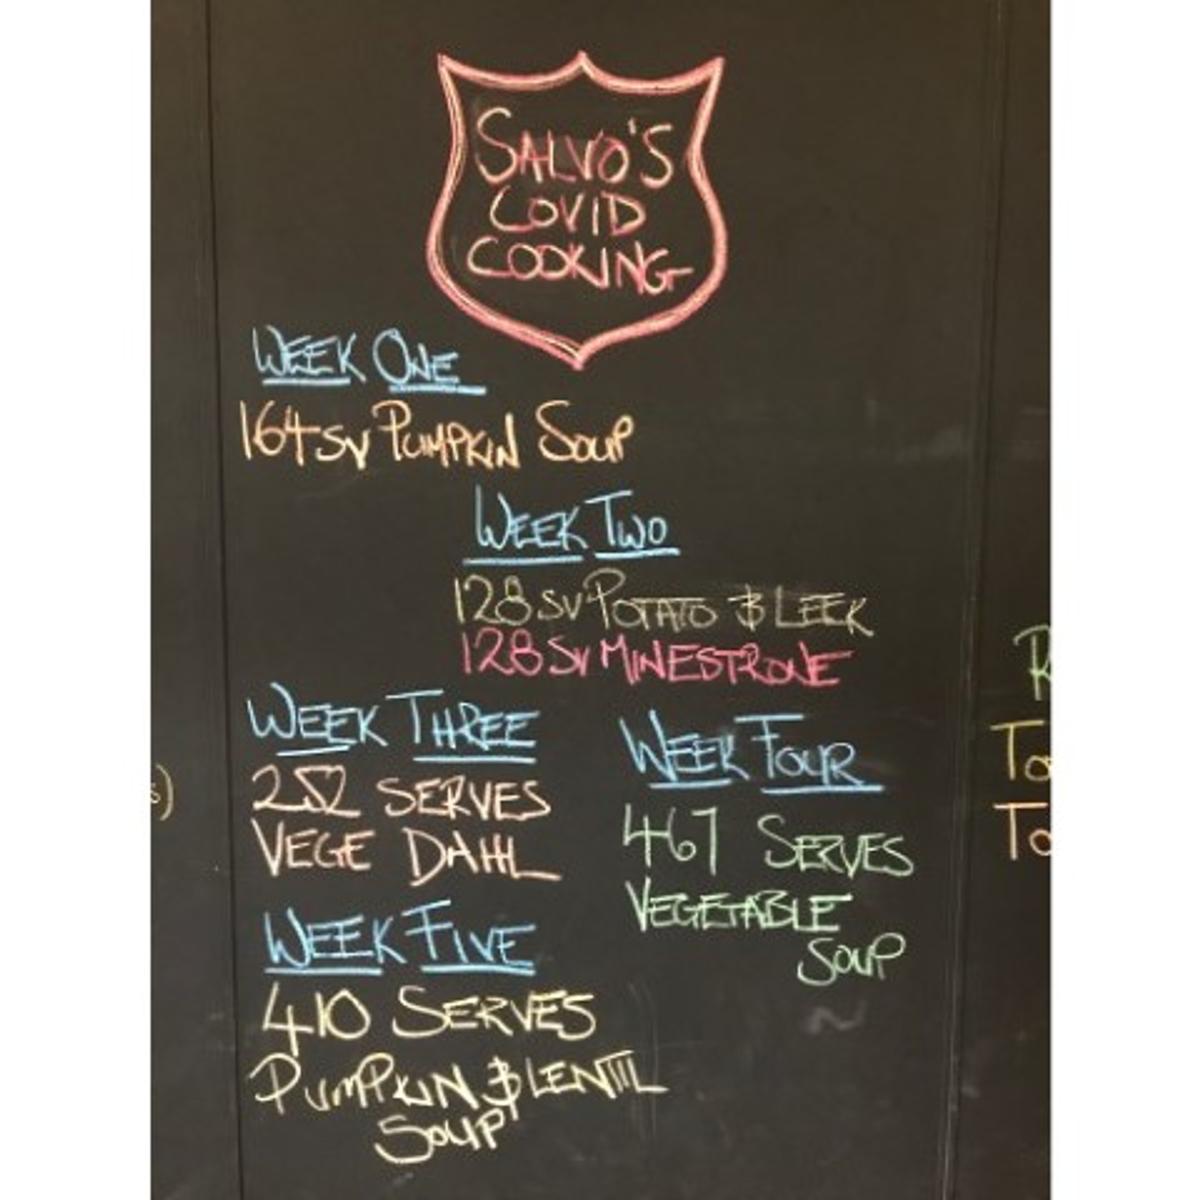 SALVO'S
COVID
COOKING
WEEK ONE
164 SV PUMPKIN SOUP
WEEK TWO
128 SV POTATO & LEEK
128 SV MINESTRONE
WEEK THREE
252 SERVES
VEGE DAHL
WEEK FOUR
467 SERVES
VEGETABLE
SOUP
WEEK FIVE
410 SERVES
PUMPKIN & LENTIL
SOUP
s)
R
To
To